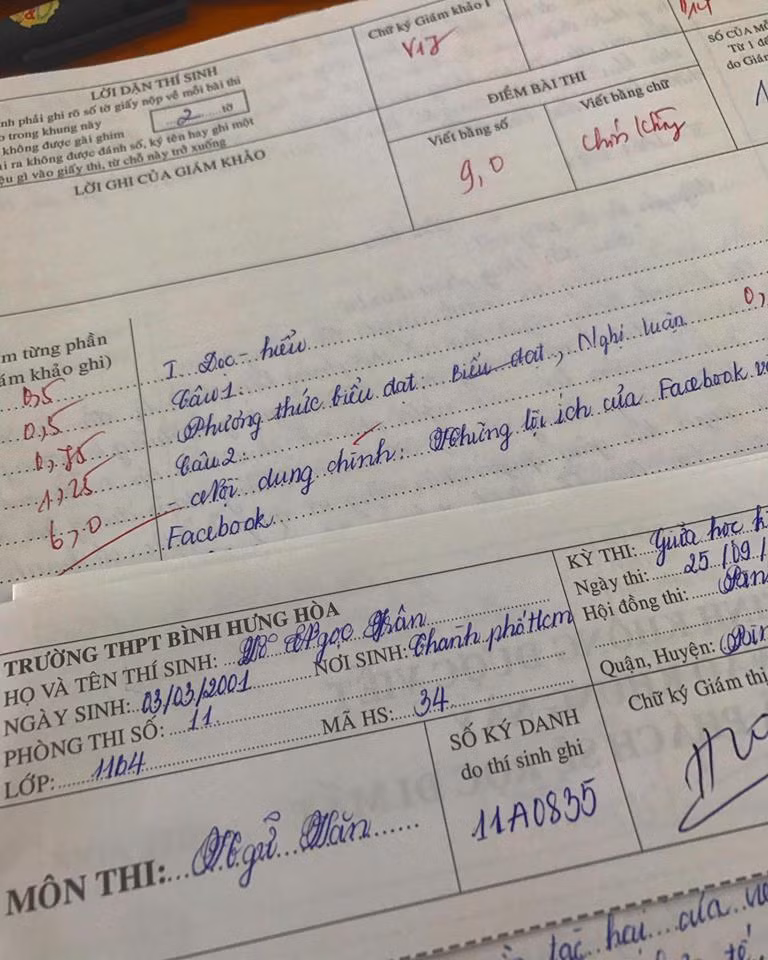 LỜI DẶN THÍ SINH
nh phải ghi rõ số tờ giấy nộp về mỗi bài thi
trong khung này
2 tờ
không được gài ghim
i ra không được đánh số, ký tên hay ghi một
ệu gì vào giấy thi, từ chỗ này trở xuống
LỜI GHI CỦA GIÁM KHẢO
Chữ ký Giám khảo 1
ĐIỂM BÀI THI
Viết bằng số
9,0
Viết bằng chữ
SỐ CỦA MỖ
Từ 1 đế
do Giám
m từng phần
ám khảo ghi)
0,5
0,5
0,75
1,25
6,0
0,
I. Đọc - hiểu
Câu 1:
Phương thức biểu đạt: Biểu đạt, Nghị luận
Câu 2:
- Nội dung chính: Những lợi ích của Facebook
Facebook
TRƯỜNG THPT BÌNH HƯNG HÒA
HỌ VÀ TÊN THÍ SINH: Ngọc Trân
NGÀY SINH: 03/03/2001 NƠI SINH: Thành phố Hcm
PHÒNG THI SỐ: 11 MÃ HS: 34
LỚP: 11b4
KỲ THI: Giữa học k
Ngày thi: 25/09/
Hội đồng thi:
Quận, Huyện: Bìn
MÔN THI: Ngữ Văn
SỐ KÝ DANH
do thí sinh ghi
11A0835
Chữ ký Giám thị
tác hại của